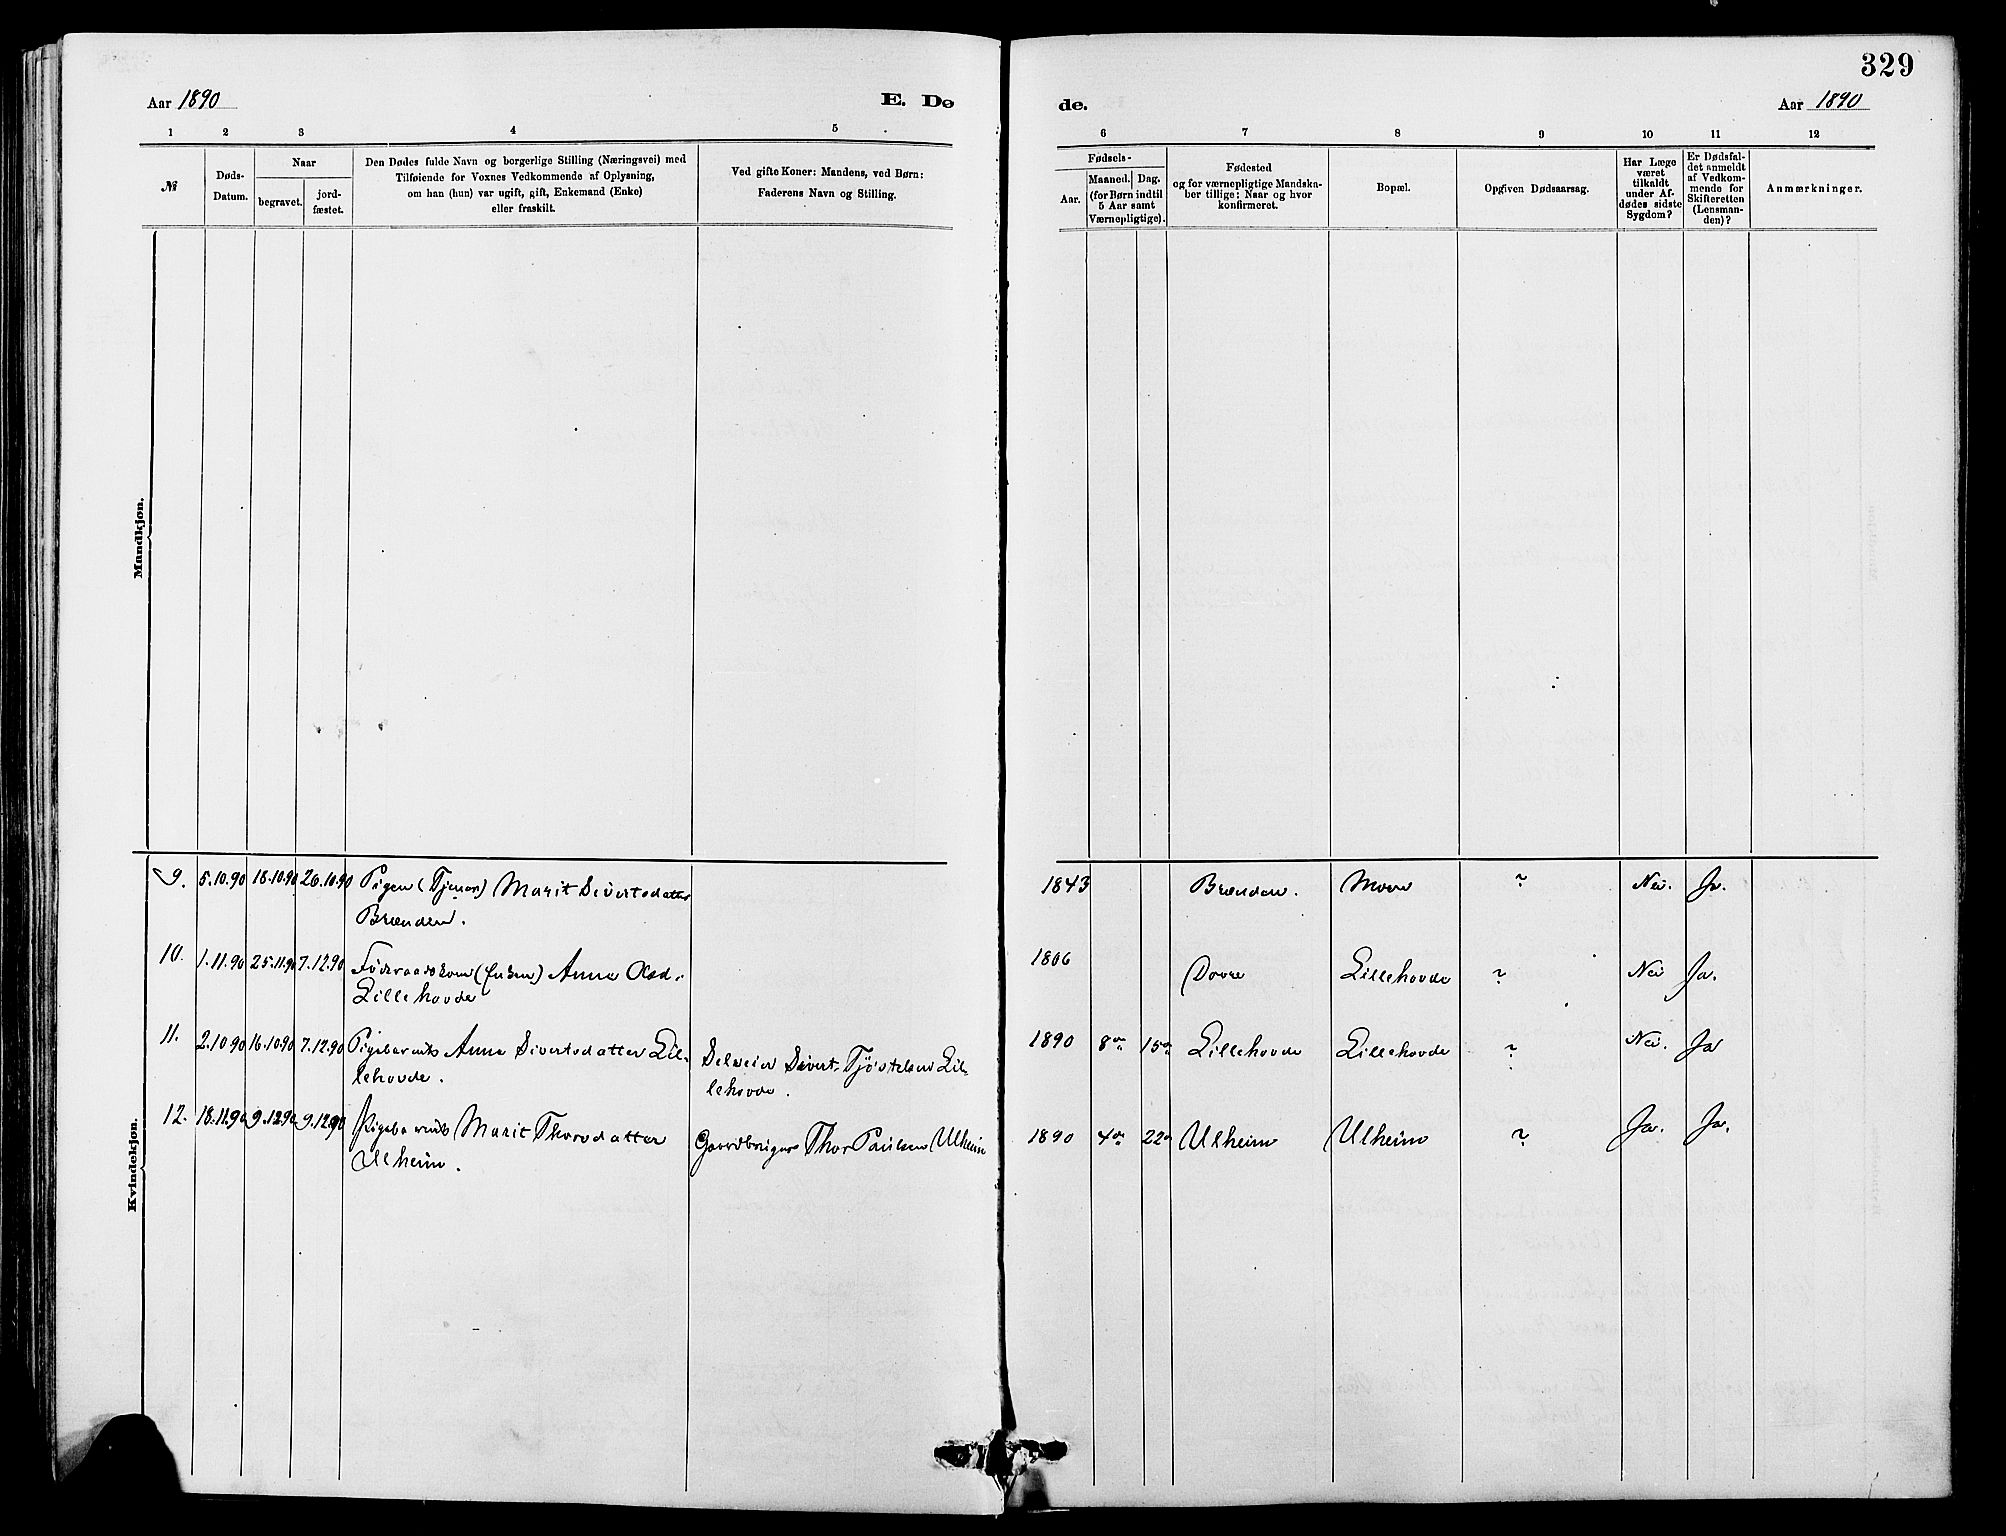 329
Aar 1890
E. Dø
de.
Aar 1890
1 2 3 4 5 6 7 8 9 10 11 12
№
Døds-
Datum.
Naar
begravet.
jord-
fæstet.
Den Dødes fulde Navn og borgerlige Stilling (Næringsvei) med
Tilføiende for Voxnes Vedkommende af Oplysning,
om han (hun) var ugift, gift, Enkemand (Enke)
eller fraskilt.
Ved gifte Koner: Mandens, ved Børn:
Faderens Navn og Stilling.
Fødsels-
Aar.
Maaned. Dag.
(for Børn indtil
5 Aar samt
Værnepligtige).
Fødested
og for værnepligtige Mandska-
ber tillige; Naar og hvor
konfirmeret.
Bopæl.
Opgiven Dødsaarsag.
Har Læge
været
tilkaldt
under Af-
dødes sidste
Sygdom?
Er Dødsfal-
det anmeldt
af Vedkom-
mende for
Skifteretten
(Lensman-
den)?
Anmærkninger.
Mandkjøn.
Kvindekjøn.
9. 5.10.90 18.10.90 26.10.90 Pigen (Tjener) Marit Sivertsdatter 1843 Brænden. Moen ? Nei. Ja.
Brænden.
10. 1.11.90 25.11.90 7.12.90 Föderaadskone (Enken) Anne Olsd. 1806 Dovre Lillehovde ? Nei Ja.
Lillehovde
11. 2.10.90 16.10.90 7.12.90 Pigebarnet Anne Sivertsdatter Lil- Selveier Sivert Tjöstelsen Lil- 1890 8de 15de Lillehovde Lillehovde ? Nei. Ja
lehovde. lehovde.
12. 18.11.90 9.12.90 9.12.90 Pigebarnet Marit Thorsdatter Gaardbruger Thor Paulsen Ulheim 1890 4de 22de Ulheim Ulheim ? Ja. Ja.
Ulheim.